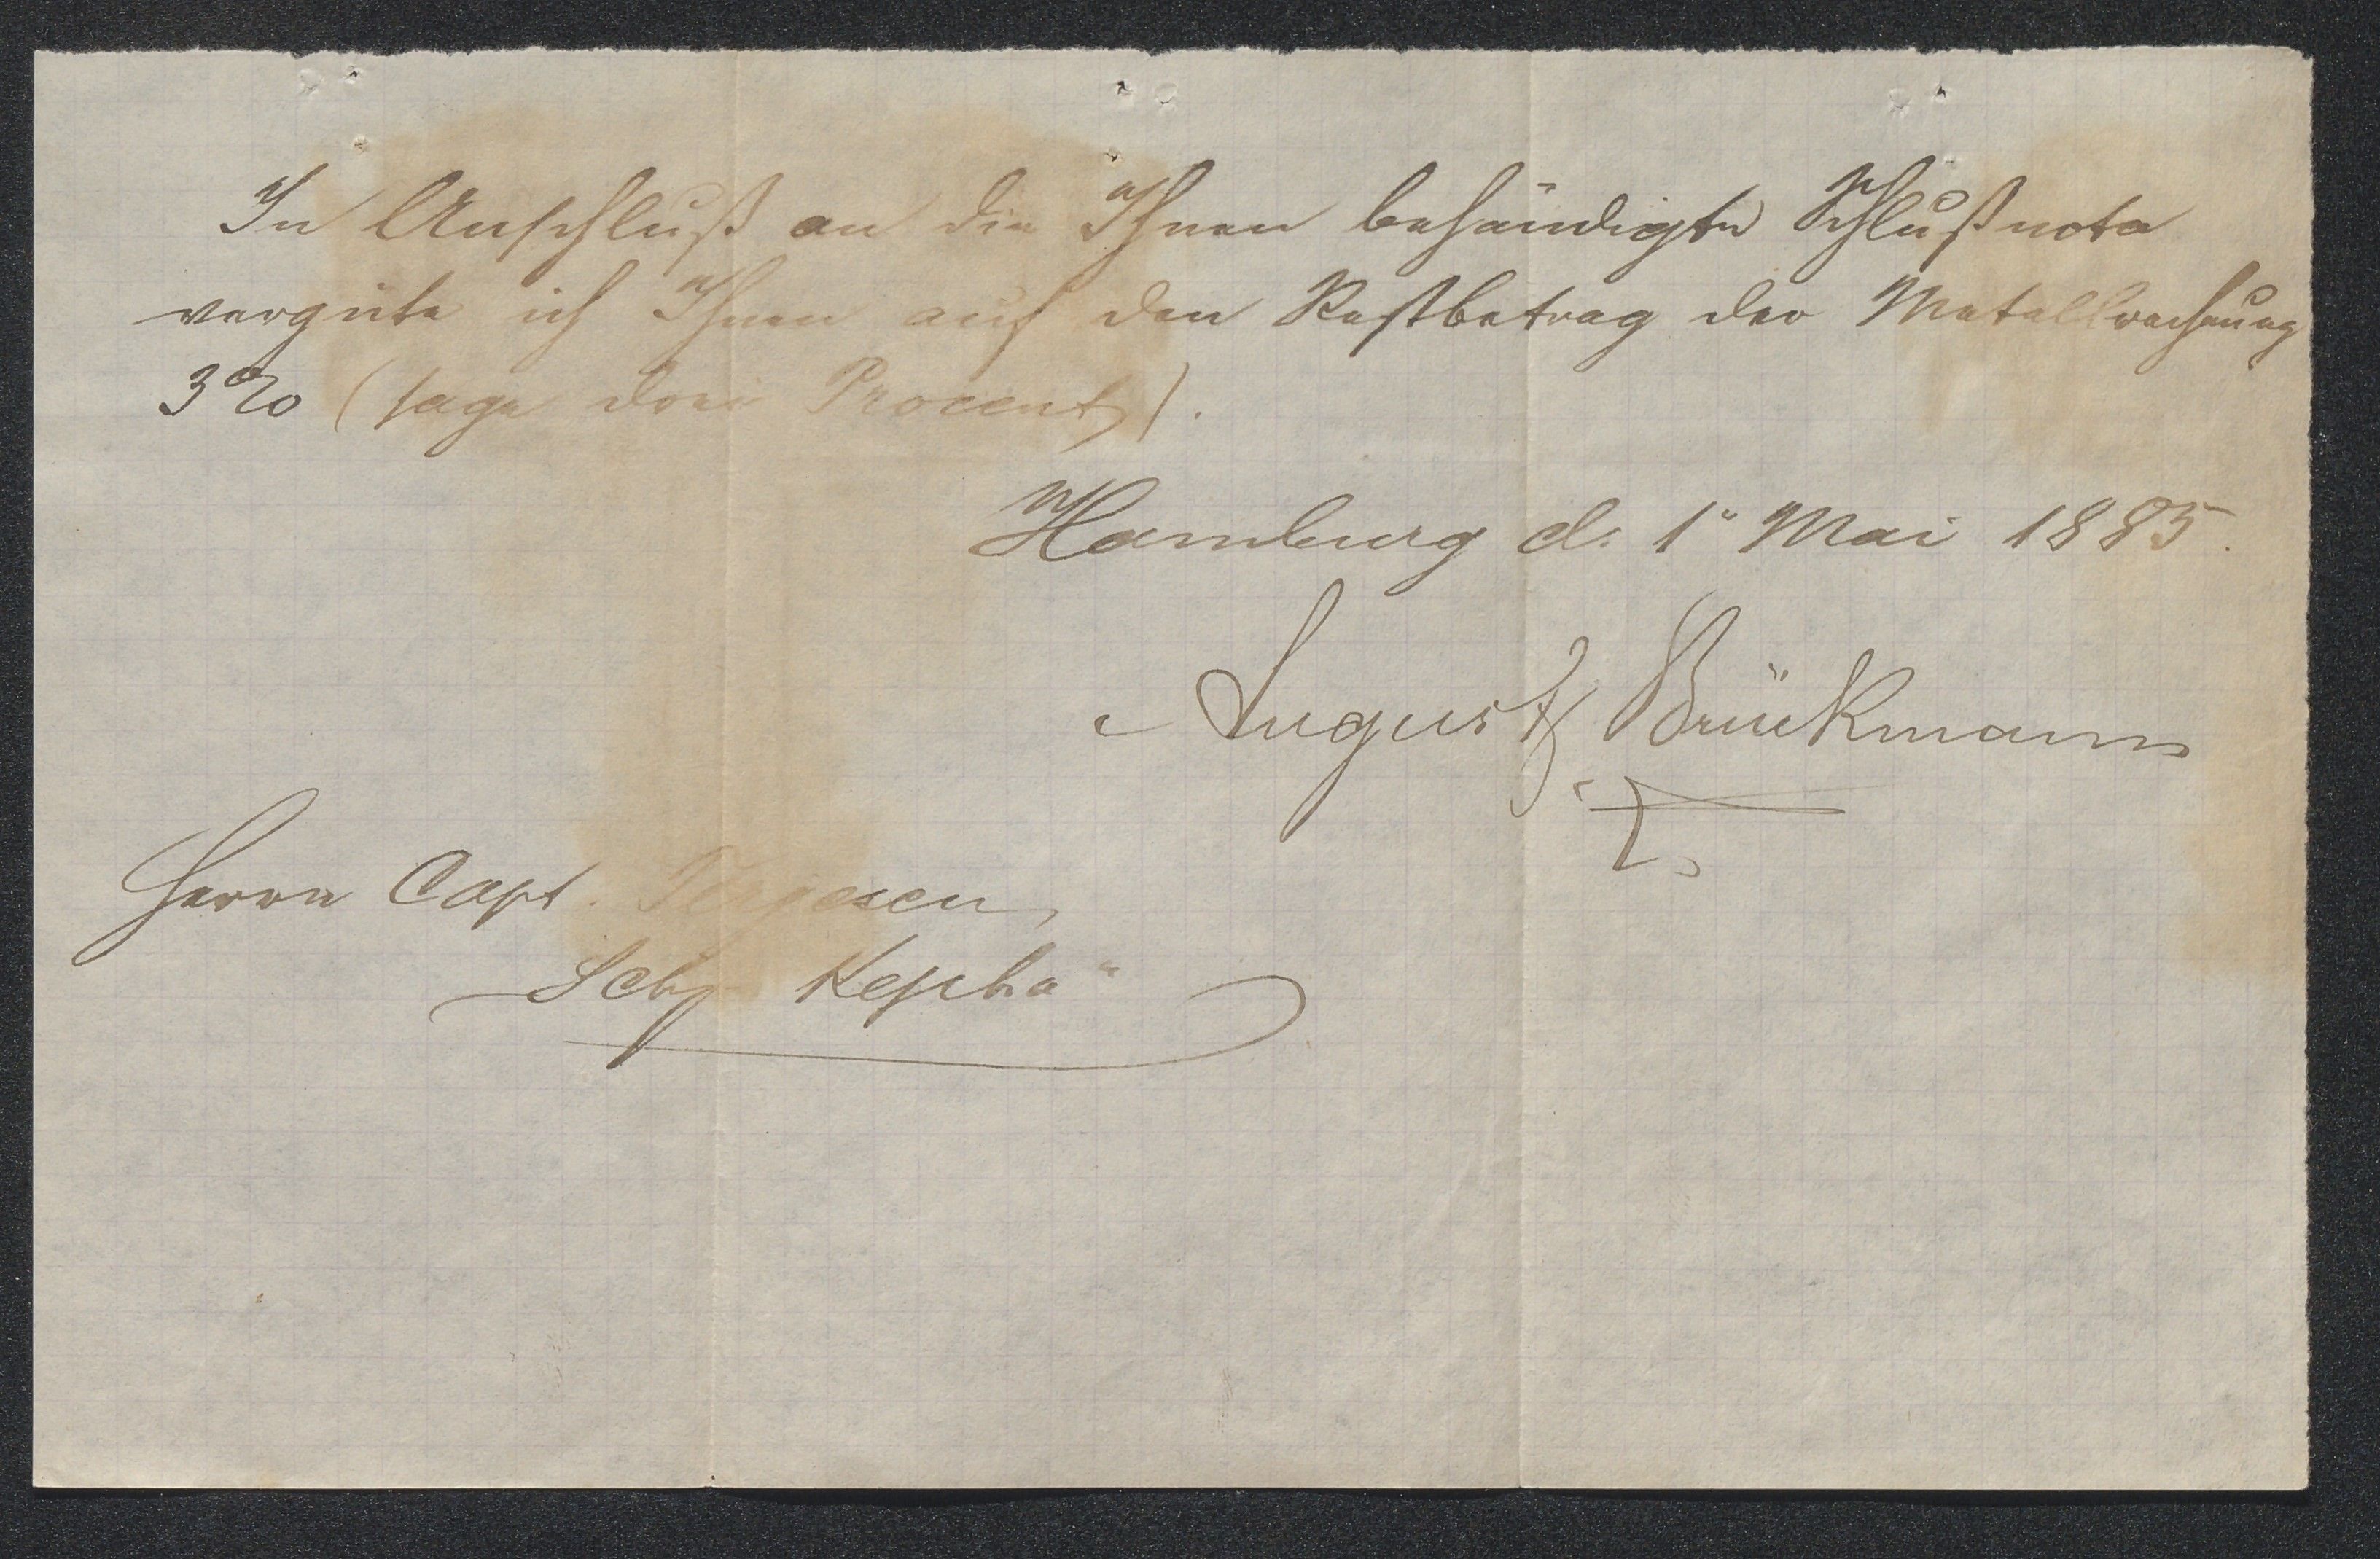 In Anschluß an die Ihnen behändigte Schlußnota
vergüte ich Ihnen auf den Restbetrag der Metallrechnung
3% (sage drei Procent).
Hamburg d. 1" Mai 1885.
August Brückmann
Herrn Capt. Terjesen,
Schp Kepha"